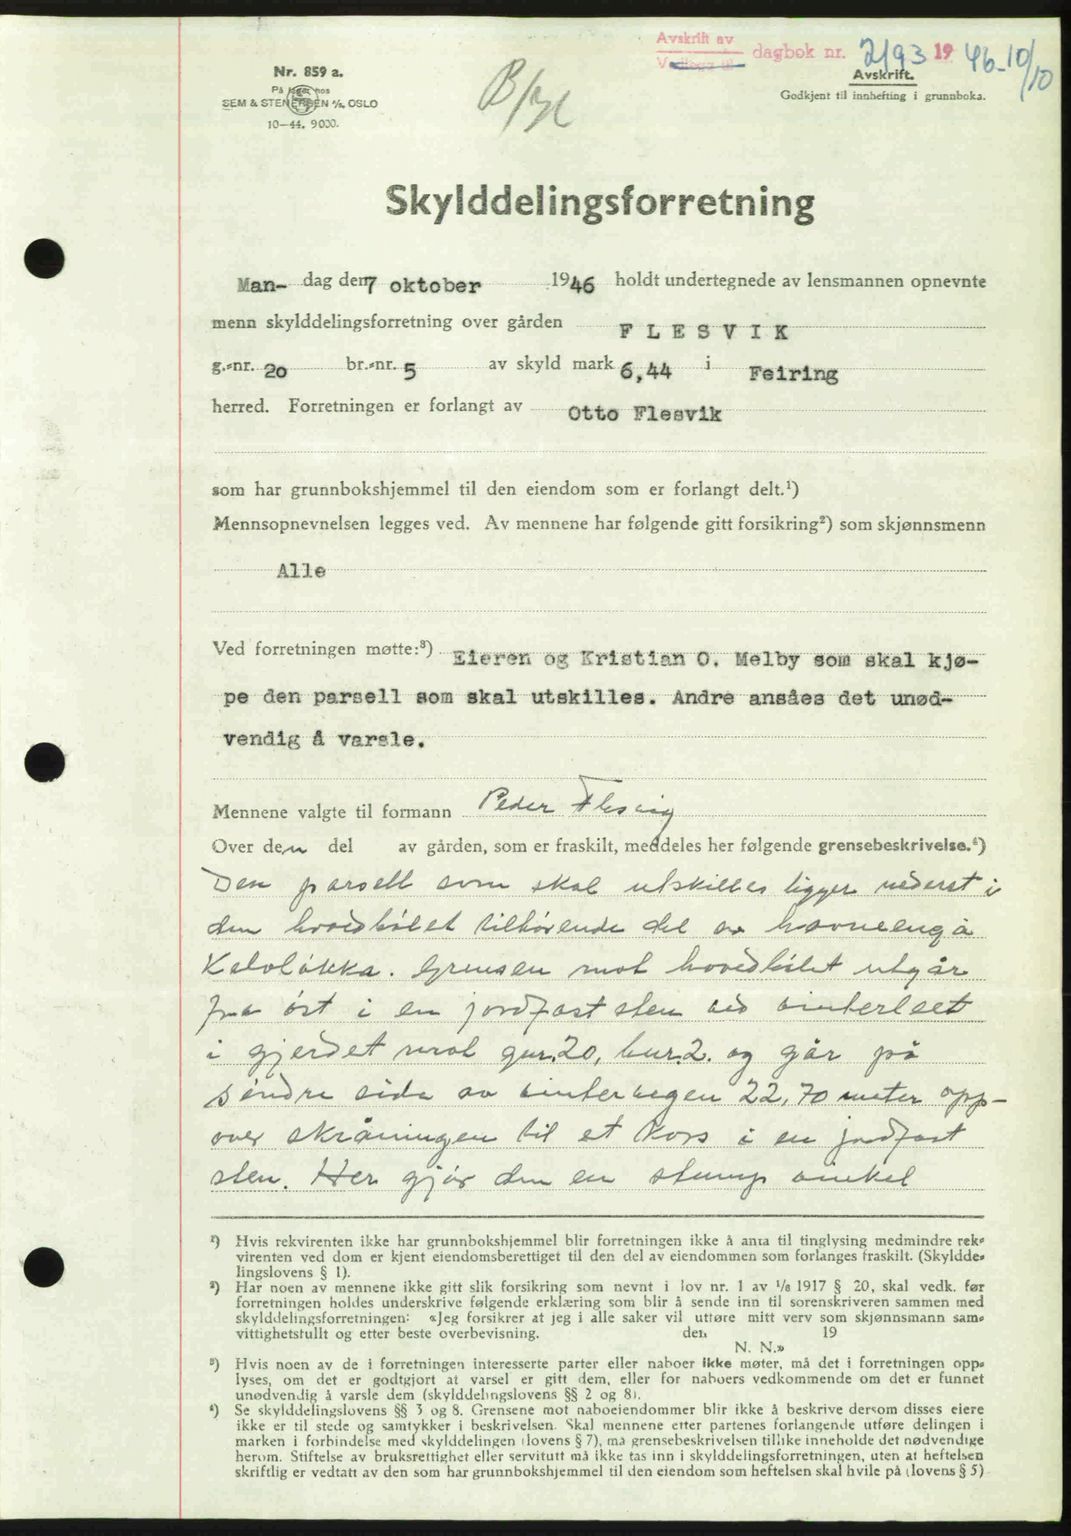 Avskrift av
dagbok nr. 2193 1946 - 10/10
Avskrift.
Godkjent til innhefting i grunnboka.
Nr. 859 a.
På lager hos
SEM & STENERSEN A/S, OSLO
10—44. 9000.
Skylddelingsforretning
Man- dag den 7 oktober 1946 holdt undertegnede av lensmannen opnevnte
menn skylddelingsforretning over gården F L E S V I K
g.-nr. 20 br.-nr. 5 av skyld mark 6,44 i Feiring
herred. Forretningen er forlangt av Otto Flesvik
som har grunnbokshjemmel til den eiendom som er forlangt delt.¹)
Mennsopnevnelsen legges ved. Av mennene har følgende gitt forsikring²) som skjønnsmenn
Alle
Ved forretningen møtte:³) Eieren og Kristian O. Melby som skal kjø-
pe den parsell som skal utskilles. Andre ansåes det unød-
vendig å varsle.
Mennene valgte til formann Peder Flesvig
Over den del av gården, som er fraskilt, meddeles her følgende grensebeskrivelse.⁴)
Den parsell som skal utskilles ligger nederst i
den hovedbölet tilhörende del av havneeng å
Kalvløkka. Grensen mot hovedbölet utgår
fra öst i en jordfast sten ved vinterleet
i gjerdet mot gnr. 20, bnr. 2. og går på
söndre side av vintervegen 22,70 meter opp-
over skråningen til et kors i en jordfast
sten. Her gjör den en stump vinkel
¹) Hvis rekvirenten ikke har grunnbokshjemmel blir forretningen ikke å anta til tinglysing medmindre rek-
virenten ved dom er kjent eiendomsberettiget til den del av eiendommen som forlanges fraskilt. (Skyldde-
lingslovens § 1).
²) Har noen av mennene ikke gitt slik forsikring som nevnt i lov nr. 1 av 1/6 1917 § 20, skal vedk. før
forretningen holdes underskrive følgende erklæring som blir å sende inn til sorenskriveren sammen med
skylddelingsforretningen: «Jeg forsikrer at jeg i alle saker vil utføre mitt verv som skjønnsmann sam-
vittighetsfullt og etter beste overbevisning. den 19
N. N.»
³) Hvis noen av de i forretningen interesserte parter eller naboer ikke møter, må det i forretningen opp-
lyses, om det er godtgjort at varsel er gitt dem, eller for naboers vedkommende om det er funnet
unødvendig å varsle dem (skylddelingslovens §§ 2 og 8).
⁴) Se skylddelingslovens §§ 3 og 8. Grensene mot naboeiendommer blir ikke å beskrive dersom disses eiere
ikke er til stede og samtykker i beskrivelsen. Skal mennene etter partenes forlangende utføre delingen i
marken i forbindelse med skylddelingen (lovens § 7), må grensebeskrivelsen tillike inneholde det nødvendige
herom. Stiftelse av bruksrettighet eller servitutt må ikke tas inn i skylddelingsforretningen, uten at heftelsen
skriftlig er vedtatt av den som har grunnbokshjemmel til den eiendom som heftelsen skal hvile på (lovens § 5)